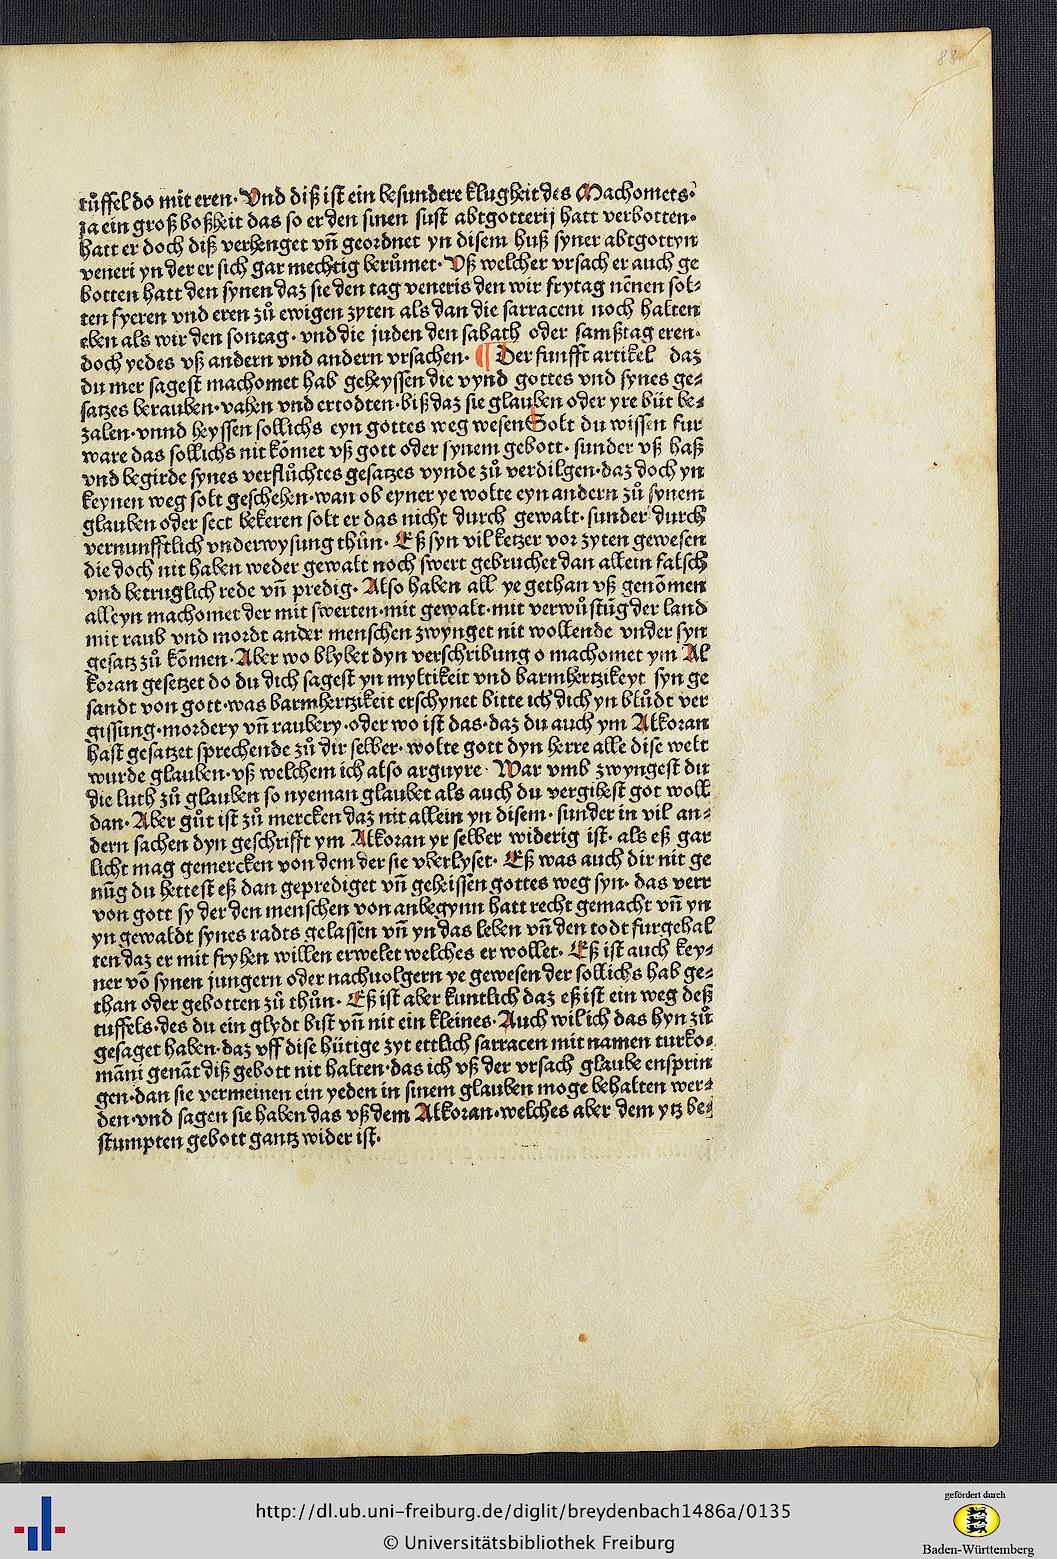 88
tüffel do mit eren. Vnd diß ist ein besundere klugheit des Machomets.
Ja ein groß boßheit das so er den sinen sust abtgotterij hatt verbotten.
hatt er doch diß verhenget vn̄ geordnet yn disem huß syner abtgottyn
veneri yn der er sich gar mechtig berůmet. Vß welcher vrsach er auch ge
botten hatt den synen daz sie den tag veneris den wir frytag nēnen sol⸗
ten fyeren vnd eren zů ewigen zyten als dan die sarraceni noch halten
eben als wir den sontag. vnd die juden den sabath oder samßtag eren.
doch yedes vß andern vnd andern vrsachen. ¶ Der funfft artikel daz
du mer sagest machomet hab geheyssen die vynd gottes vnd synes ge⸗
satzes berauben. vahen vnd ertodten. biß daz sie glauben oder yre büt be⸗
zalen. vnnd heyssen sollichs eyn gottes weg wesen Solt du wissen fur
ware das sollichs nit kōmet vß gott oder synem gebott. sunder vß haß
vnd begirde synes verflůchtes gesatzes vynde zů verdilgen. daz doch yn
keynen weg solt geschehen. wan ob eyner ye wolte eyn andern zů synem
glauben oder sect bekeren solt er das nicht durch gewalt. sunder durch
vernunfftlich vnderwysung thůn. Eß syn vil ketzer vor zyten gewesen
die doch nit haben weder gewalt noch swert gebruchet dan allein falsch
vnd betruglich rede vn̄ predig. Also haben all ye gethan vß genōmen
alleyn machomet der mit swerten. mit gewalt. mit verwůstūg der land
mit raub vnd mordt ander menschen zwynget nit wollende vnder syn
gesatz zů kōmen. Aber wo blybet dyn verschribung o machomet ym Al
koran gesetzet do du dich sagest yn myltikeit vnd barmhertzikeyt syn ge
sandt von gott. was barmhertzikeit erschynet bitte ich dich yn blůdt ver
gissung. mordery vn̄ raubery. oder wo ist das. daz du auch ym Alkoran
hast gesatzet sprechende zů dir selber. wolte gott dyn herre alle dise welt
wurde glauben. vß welchem ich also arguyre. War vmb zwyngest du
die luth zů glauben so nyeman glaubet als auch du vergihest got woll
dan. Aber gůt ist zů mercken daz nit allein yn disem. sunder in vil an⸗
dern sachen dyn geschrifft ym Alkoran yr selber widerig ist. als eß gar
licht mag gemercken von dem der sie vberlyset. Eß was auch dir nit ge
nūg du hettest eß dan geprediget vn̄ geheissen gottes weg syn. das verr
von gott sy der den menschen von anbegynn hatt recht gemacht vn̄ yn
yn gewaldt synes radts gelassen vn̄ yn das leben vn̄ den todt furgehal
ten daz er mit fryhen willen erwelet welches er wollet. Eß ist auch key⸗
ner vō synen jungern oder nachuolgern ye gewesen der sollichs hab ge⸗
than oder gebotten zů thůn. Eß ist aber kuntlich daz eß ist ein weg deß
tuffels. des du ein glydt bist vn̄ nit ein kleines. Auch wil ich das hyn zů
gesaget haben. daz vff dise hütige zyt ettlich sarracen mit namen turko⸗
māni genāt diß gebott nit halten. das ich vß der vrsach glaube ensprin
gen. dan sie vermeinen ein yeden in sinem glauben moge behalten wer⸗
den. vnd sagen sie haben das vß dem Alkoran. welches aber dem ytz be⸗
stumpten gebott gantz wider ist.
http://dl.ub.uni-freiburg.de/diglit/breydenbach1486a/0135
© Universitätsbibliothek Freiburg
gefördert durch
Baden-Württemberg